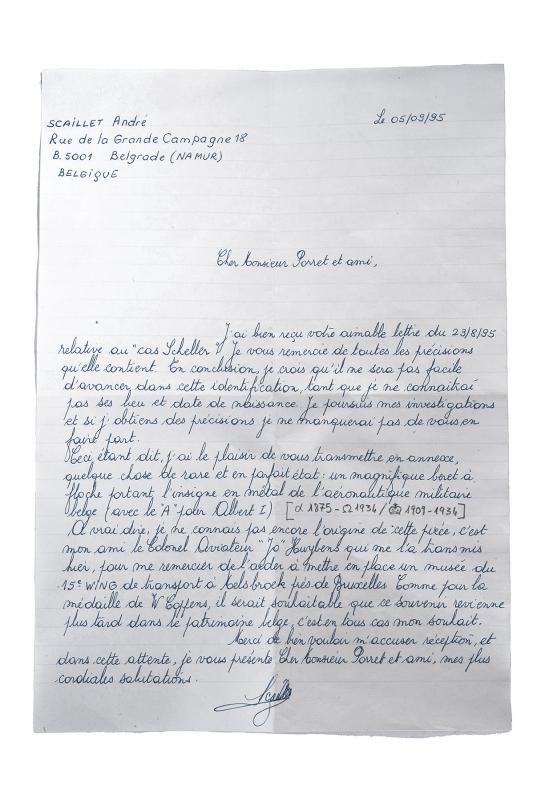 SCAILLET André
Le 05/09/95
Rue de la Grande Campagne 18
B. 5001 Belgrade (NAMUR)
BELGIQUE
Cher Monsieur Porret et ami,
J'ai bien reçu votre aimable lettre du 23/8/95
relative au "cas Scheller"! Je vous remercie de toutes les précisions
qu'elle contient. En conclusion, je crois qu'il ne sera pas facile
d'avancer dans cette identification, tant que je ne connaîtrai
pas ses lieu et date de naissance. Je poursuis mes investigations
et si j'obtiens des précisions je ne manquerai pas de vous en
faire part.
Ceci étant dit, j'ai le plaisir de vous transmettre en annexe,
quelque chose de rare et en parfait état : un magnifique béret à
floche portant l'insigne en métal de l'aéronautique militaire
belge (avec le "A" pour Albert I) [α 1875 - Ω 1934 / 1909-1934]
A vrai dire, je ne connais pas encore l'origine de cette pièce, c'est
mon ami le Colonel Aviateur "Jo" Huybens qui me l'a transmis
hier, pour me remercier de l'aider à mettre en place un musée du
15e WING de transport à Melsbroek près de Bruxelles. Comme pour la
médaille de W Coppens, il serait souhaitable que ce souvenir revienne
plus tard dans le patrimoine belge, c'est en tous cas mon souhait.
Merci de bien vouloir m'accuser réception, et
dans cette attente, je vous présente Cher Monsieur Porret et ami, mes plus
cordiales salutations.